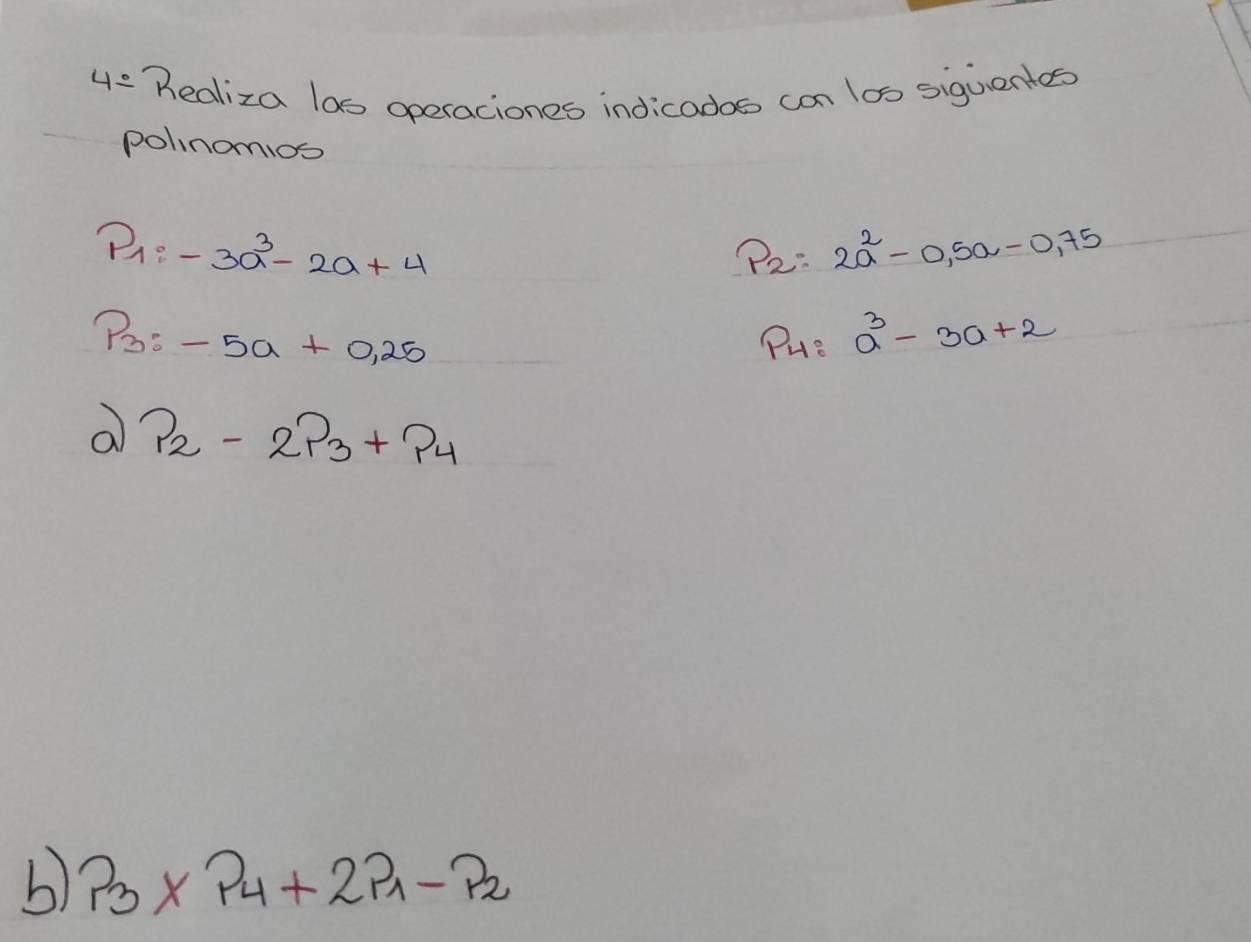 4- Realiza las operaciones indicadas con los siguientes
polinomios
P₁: -3a³ - 2a + 4
P₂: 2a² - 0,5a - 0,75
P₃: -5a + 0,25
P₄: a³ - 3a + 2
a) P₂ - 2P₃ + P₄
b) P₃ x P₄ + 2P₁ - P₂